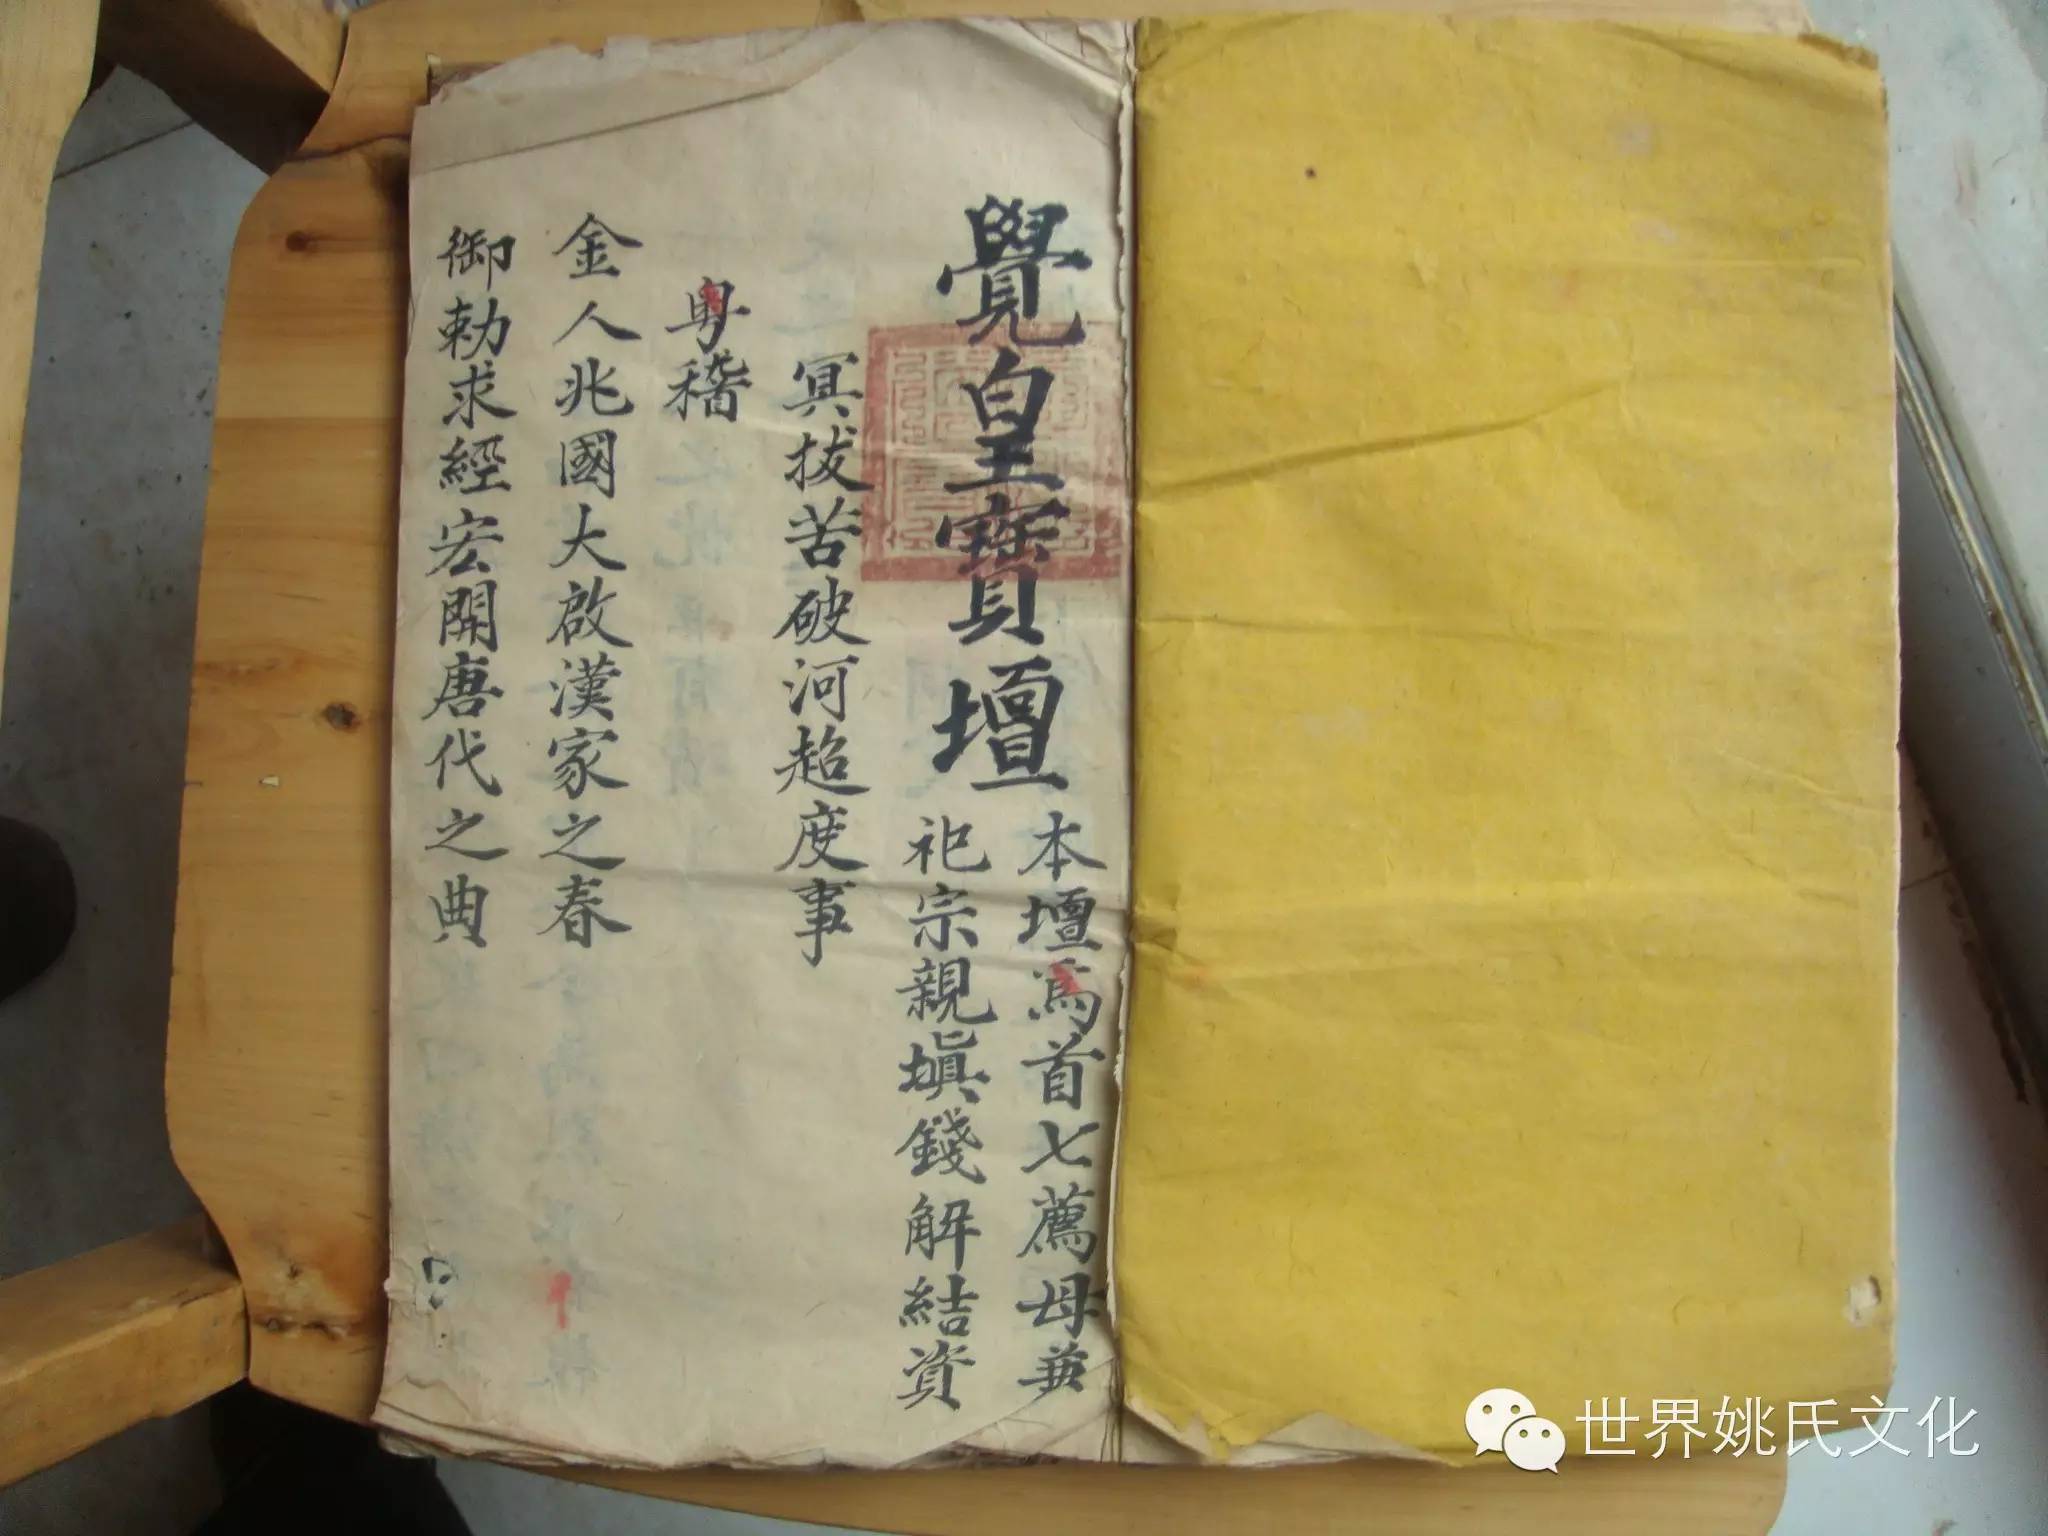 覺皇寶壇
本壇爲首七薦母兼
祀宗親塡錢解結資
冥拔苦破河超度事
粤稽
金人兆國大啟漢家之春
御勅求經宏開唐代之典
世界姚氏文化